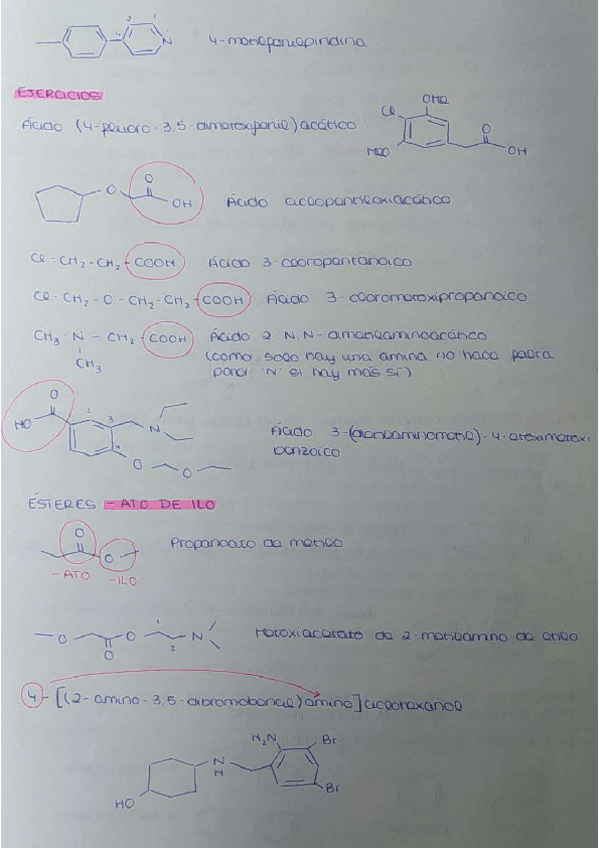 4-metilfenilpiridina
EJERCICIOS
Ácido (4-cloro-3,5-dimetoxifenil)acético
Cl OMe
MeO
O
OH
O O
OH
Ácido ciclopentiloxiacético
Cl-CH2-CH2-COOH Ácido 3-cloropentanoico
Cl-CH2-O-CH2-CH2-COOH Ácido 3-clorometoxipropanoico
CH3-N-CH2-COOH Ácido 2 N,N-dimetilaminoacético
CH3 (como solo hay una amina no hace falta
poner 'N' si hay más sí)
O
HO 2 3 N
4
O O
Ácido 3-(dietilaminometil)-4-etoximetoxi
benzoico
ÉSTERES -ATO DE ILO
O
O
-ATO -ILO
Propanoato de metilo
O O N
O 2
Metoxiacetato de 2-metilamino de etilo
4-[(2-amino-3,5-dibromobencil)amino]ciclohexanol
H2N Br
N
H
HO
Br